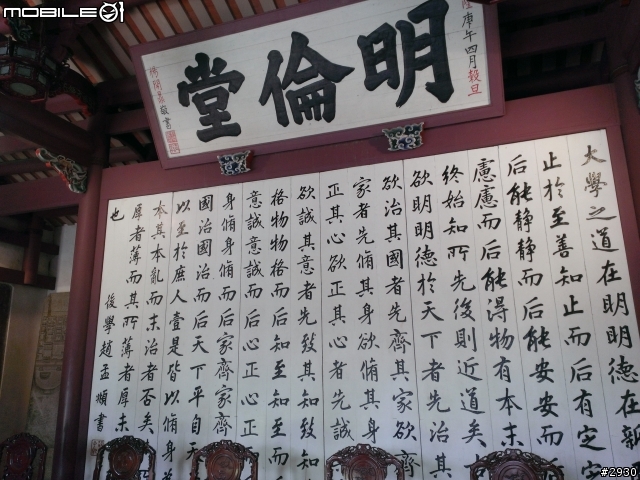 MOBILE01
明倫堂
庚午四月穀旦
敬書
大學之道在明明德在新
止於至善知止而后有定定
后能静静而后能安安而后
慮慮而后能得物有本末
終始知所先後則近道矣
欲明明德於天下者先治其
欲治其國者先齊其家欲齊
家者先脩其身欲脩其身
正其心欲正其心者先誠
欲誠其意者先致其知致知
格物物格而后知至知至而
意誠意誠而后心正心正
身脩身脩而后家齊家齊
國治國治而后天下平自天
以至於庶人壹是皆以脩身
本其本亂而末治者否矣
厚者薄而其所薄者厚未
也
後學趙孟頫書
#2930